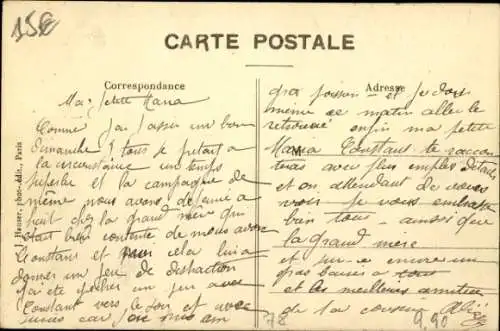 15€
CARTE POSTALE
Correspondance
Adresse
Hauser, phot.-édit., Paris
Ma petite Maria
Comme j'ai passer un bon
dimanche tous se pretant a
la circonstance un temps
superbe et la campagne de
même nous avons dejeuné a
chez la grand mere qui
était bien contente de nous avoir
Constant et cela lui a
donner un peu de distraction
j'ai été pecher un peu avec
Constant vers le soir et
car
gros poisson et je dois
même ce matin aller le
retrouvé enfin ma petite
Maria Constant te racon-
teras avec plus emples details
et en attendant de vous
voir je vous embrasse
bien tous ainsi que
la grand mere
et encore un
gros baiser a tous
et les meilleurs amities
de la cousine
78
9.90